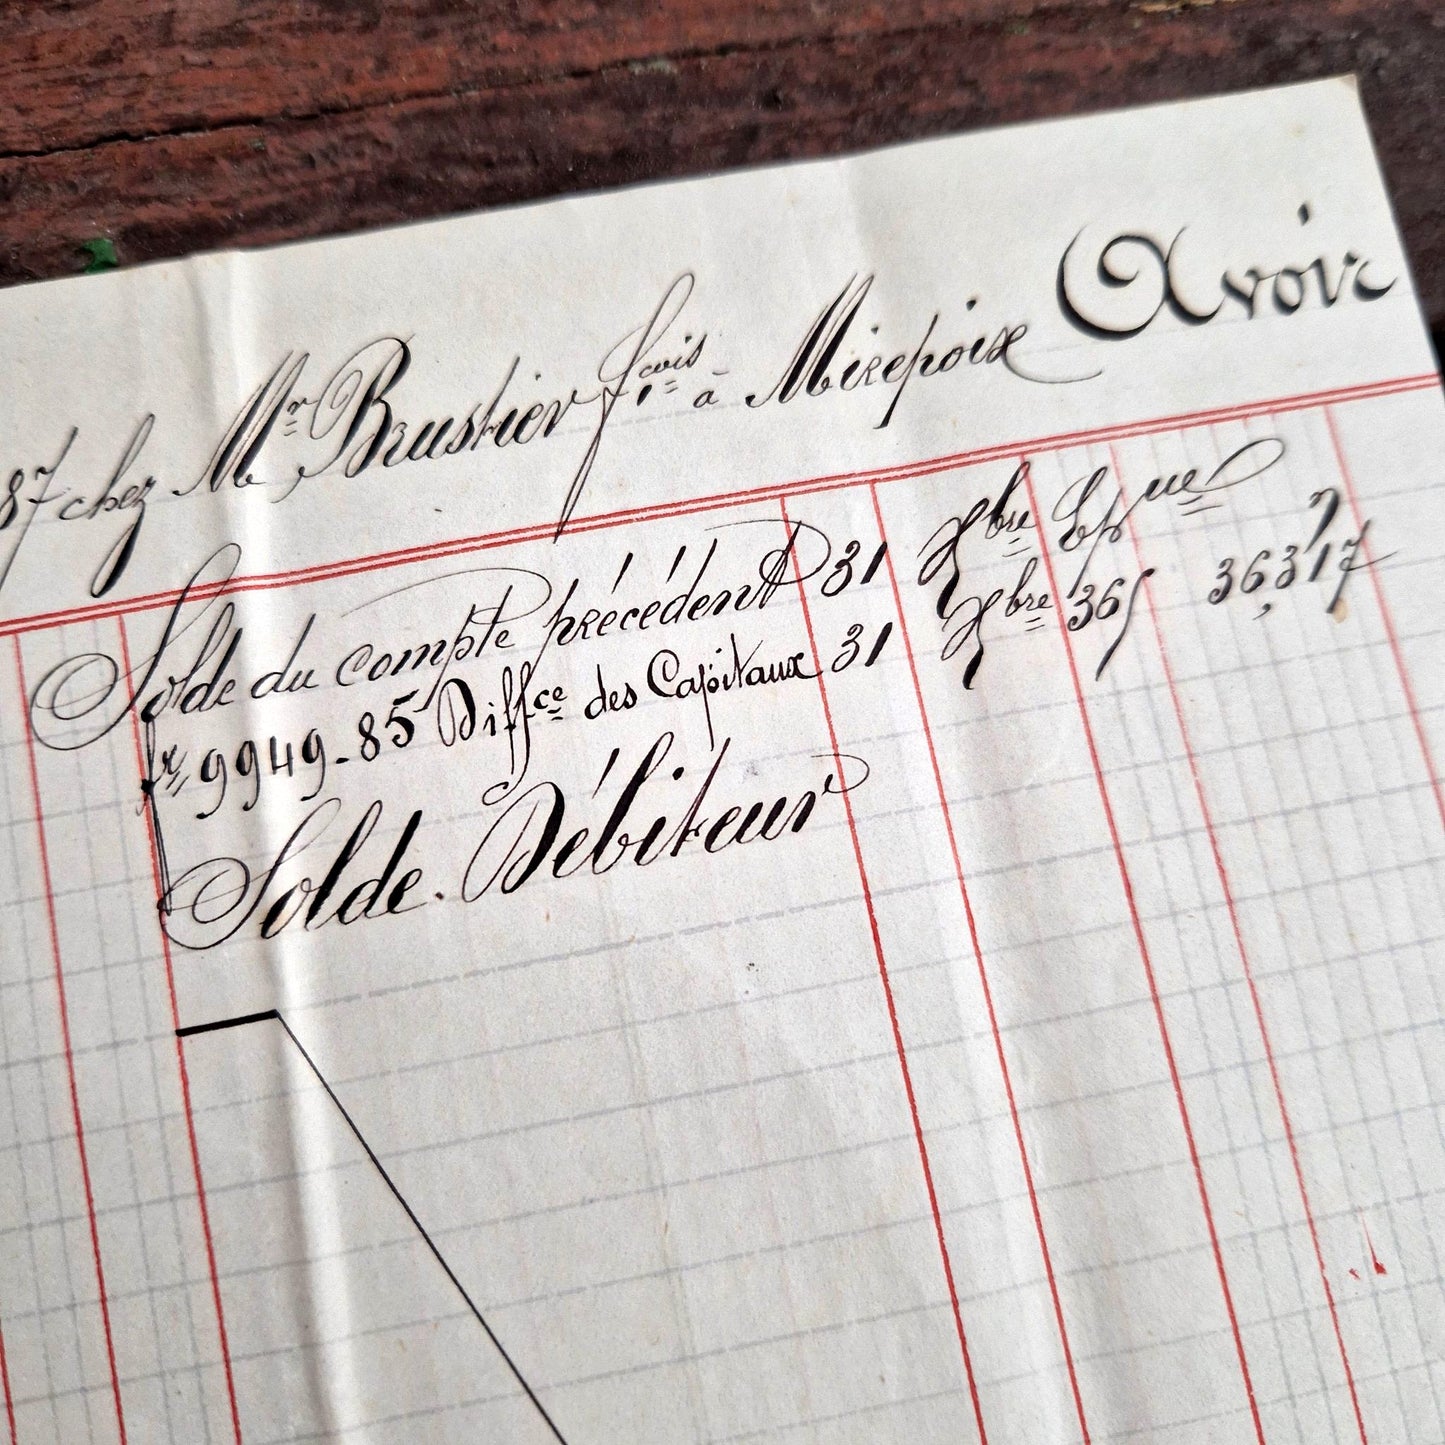 87 chez Mr Brustier fcois à Mirepoix Avoir
Solde du compte précédent 31 Xbre Epque
fr 9949-85 Diffce des Capitaux 31 Xbre 365 36,317
Solde. Débiteur